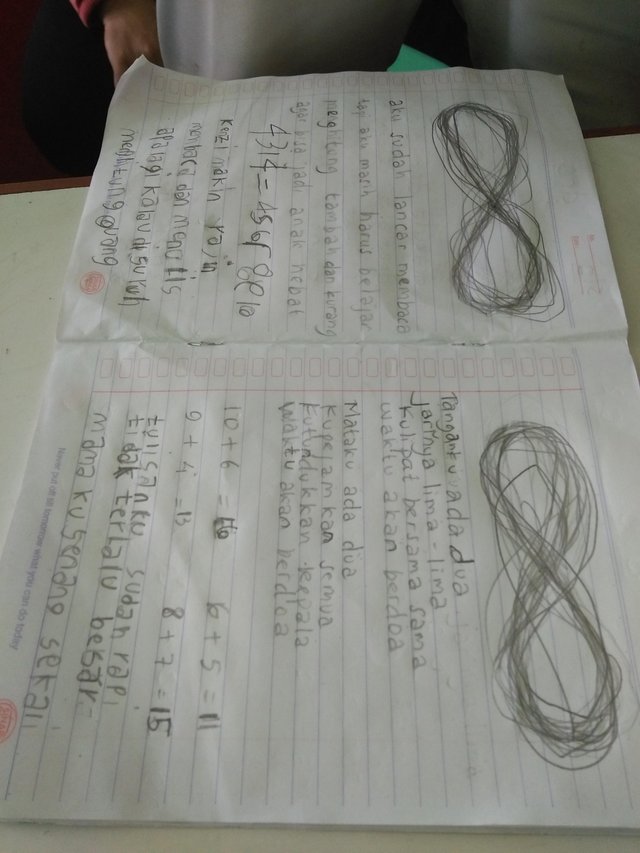 aku sudah lancar membaca
tapi aku masih harus belajar
menghitung tambah dan kurang
agar bisa jadi anak hebat
kenzi makin rajin
membaca dan menulis
apalagi kalau di suruh
menghitung uang
Tanganku ada dua
Jarinya lima-lima
kulipat bersama sama
waktu akan berdoa
Mataku ada dua
kupejamkan semua
kutundukkan kepala
waktu akan berdoa
10 + 6 = 16 6 + 5 = 11
9 + 4 = 13 8 + 7 = 15
tulisanku sudah rapi
tidak terlalu besar.
mama ku senang sekali
Never put off till tomorrow what you can do today